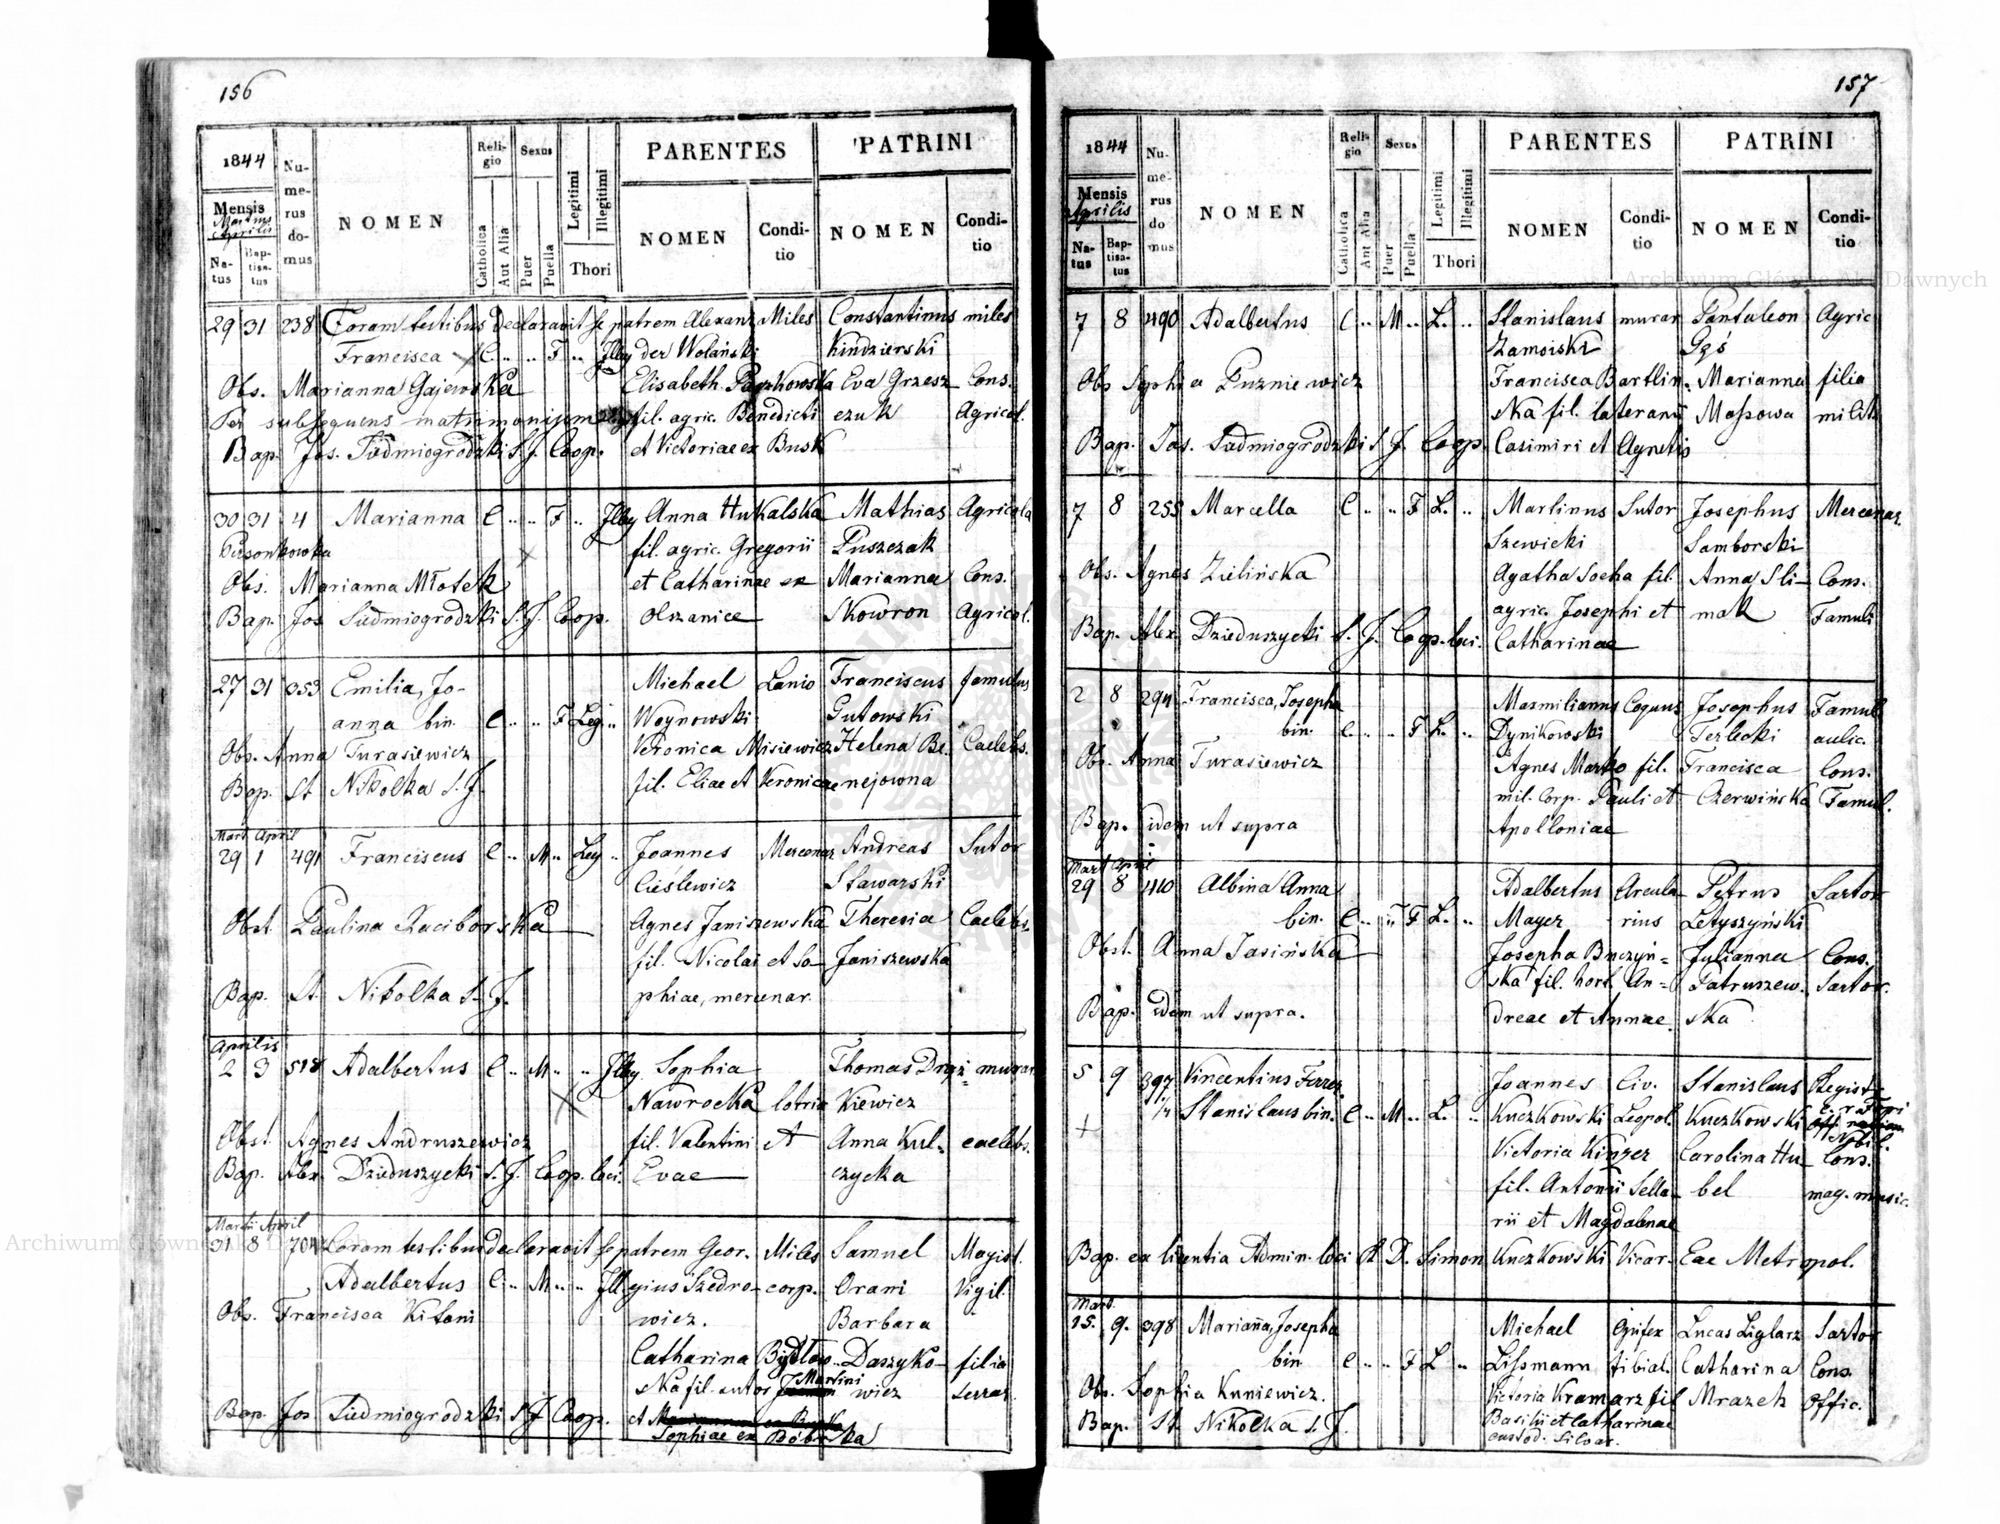 156
1844
Numerus domus
NOMEN
Religio
Sexus
Legitimi
Illegitimi
PARENTES
PATRINI
Mensis
Martius
Aprilis
Natus
Baptisatus
Catholica
Aut Alia
Puer
Puella
Thori
NOMEN
Conditio
NOMEN
Conditio
29 31 238 Coram testibus declaravit se patrem Alexan= Miles Constantinus miles
Francisca C. .. .. F .. Illeg der Wolański Kindzierski
Obs. Marianna Gajewska Elisabeth Paszkowska Eva Grzesz= Cons.
Per subsequens matrimonium Leg. fil. agric. Benedicti czuk Agricol.
Bap. Jos. Siedmiogrodzki S. J. Coop. et Victoriae ex Busk
30 31 4 Marianna C .. .. F .. Illeg Anna Hukalska Mathias Agricola
Persenkowka fil. agric. Gregorii Puszczak
Obs. Marianna Młotek et Catharinae ex Marianna Cons.
Bap. Jos Siedmiogrodzki S. J. Coop. Olszanice Skowron Agricol.
27 31 353 Emilia, Jo- Michael Lanio Franciscus famulus
anna bin C .. .. F Leg .. Woynowski Gutowski
Obs. Anna Turasiewicz Veronica Misiewicz Helena Be. Caelebs.
Bap. St. Nikolka S. J. fil. Eliae et Veronicae nejowna
Mart April
29 1 491 Franciscus C .. M .. Leg .. Joannes Mercenar Andreas Sutor
Cieślewicz Stawarski
Obst. Paulina Raciborska Agnes Janiszewska Theresia Caelebs.
fil. Nicolai et So- Janiszewska
Bap. St. Nikolka S. J. phiae, mercenar.
Aprilis
2 3 518 Adalbertus C .. M .. .. Illeg Sophia Thomas Droz= murar
Nawrocka lotrix Kiewicz
Obst. Agnes Andruszewicz fil. Valentini et Anna Kul= caelebs.
Bap. Alex. Dzieduszycki S. J. Coop. loci. Evae czycka
Martii April
31 8 704 Coram testibus declaravit se patrem Geor. Miles Samuel Magist.
Adalbertus C. .. M .. .. Ill gius Szedro- corp. Orani Vigil.
Obs. Francisca Kitani wicz. Barbara
Catharina Bydłow.. Daszyko- filia
ska fil. sutor Martini wicz serrar.
Bap. Jos Siedmiogrodzki S J Coop. et
Sophiae ex Bóbrka
157
1844
Numerus domus
NOMEN
Religio
Sexus
Legitimi
Illegitimi
PARENTES
PATRINI
Mensis
Aprilis
Natus
Baptisatus
Catholica
Aut Alia
Puer
Puella
Thori
NOMEN
Conditio
NOMEN
Conditio
7 8 490 Adalbertus C .. M .. L. .. Stanislaus murar Pantaleon Agric
Zamoiski Gzó
Obs Sophia Puzniewicz Francisca Bartlin= Marianna filia
ska fil. laterarii Massowa milit
Bap. Jos. Siedmiogrodzki S. J. Coop. Casimiri et Agnetis
7 8 255 Marcella C .. .. F L. .. Martinus Sutor Josephus Mercenar.
Szewicki Samborski
Obs. Agnes Zielińska Agatha Socha fil. Anna Sli- Cons.
agric. Josephi et mak Famuli
Bap. Alex. Dzieduszycki S. J. Coop. loci. Catharinae
2 8 294 Francisca, Josepha Maxmilianus Coquus Josephus Famul
bin. C. .. .. F L. .. Dynikowski Terlecki aulic.
Obs. Anna Turasiewicz Agnes Marko fil. Francisca Cons.
mil. corp. Pauli et Czerwińska Famul.
Bap. idem ut supra Apolloniae
Mart April
29 8 410 Albina Anna Adalbertus Arcula- Petrus Sartor
bin. C. .. .. F L. .. Mayer rius Letyszyński
Obst. Anna Jasińska Josepha Buczyń= Julianna Cons.
ska fil. hort. An= Patruszew. Sartor.
Bap. idem ut supra. dreae et Annae. ska
5 9 397 Vincentius Ferrer. Joannes Civ. Stanislaus Regist=
1/4 Stanislaus bin. C .. M .. L. .. Kuczkowski Leopol. Kuczkowski
Nobil.
Victoria Kinzer Carolina Hu- Cons.
fil. Antonii Sella- bel mag. music.
rii et Magdalenae
Bap. ex licentia Admin. loci R. D. Simon Kuczkowski Vicar. Eae Metropol.
Mart.
15. 9. 398 Marianna, Josepha Michael Opifex Lucas Liglarz Sartor
bin C .. .. F L .. Lissmann tibial. Catharina Cons.
Obs. Sophia Kuniewicz. Victoria Kramarz fil Mrazek Offic.
Bap. St. Nikolka S. J. Basilii et Catharinae
custod. silvar.
Archiwum Główne Akt Dawnych
Archiwum Główne Akt Dawnych